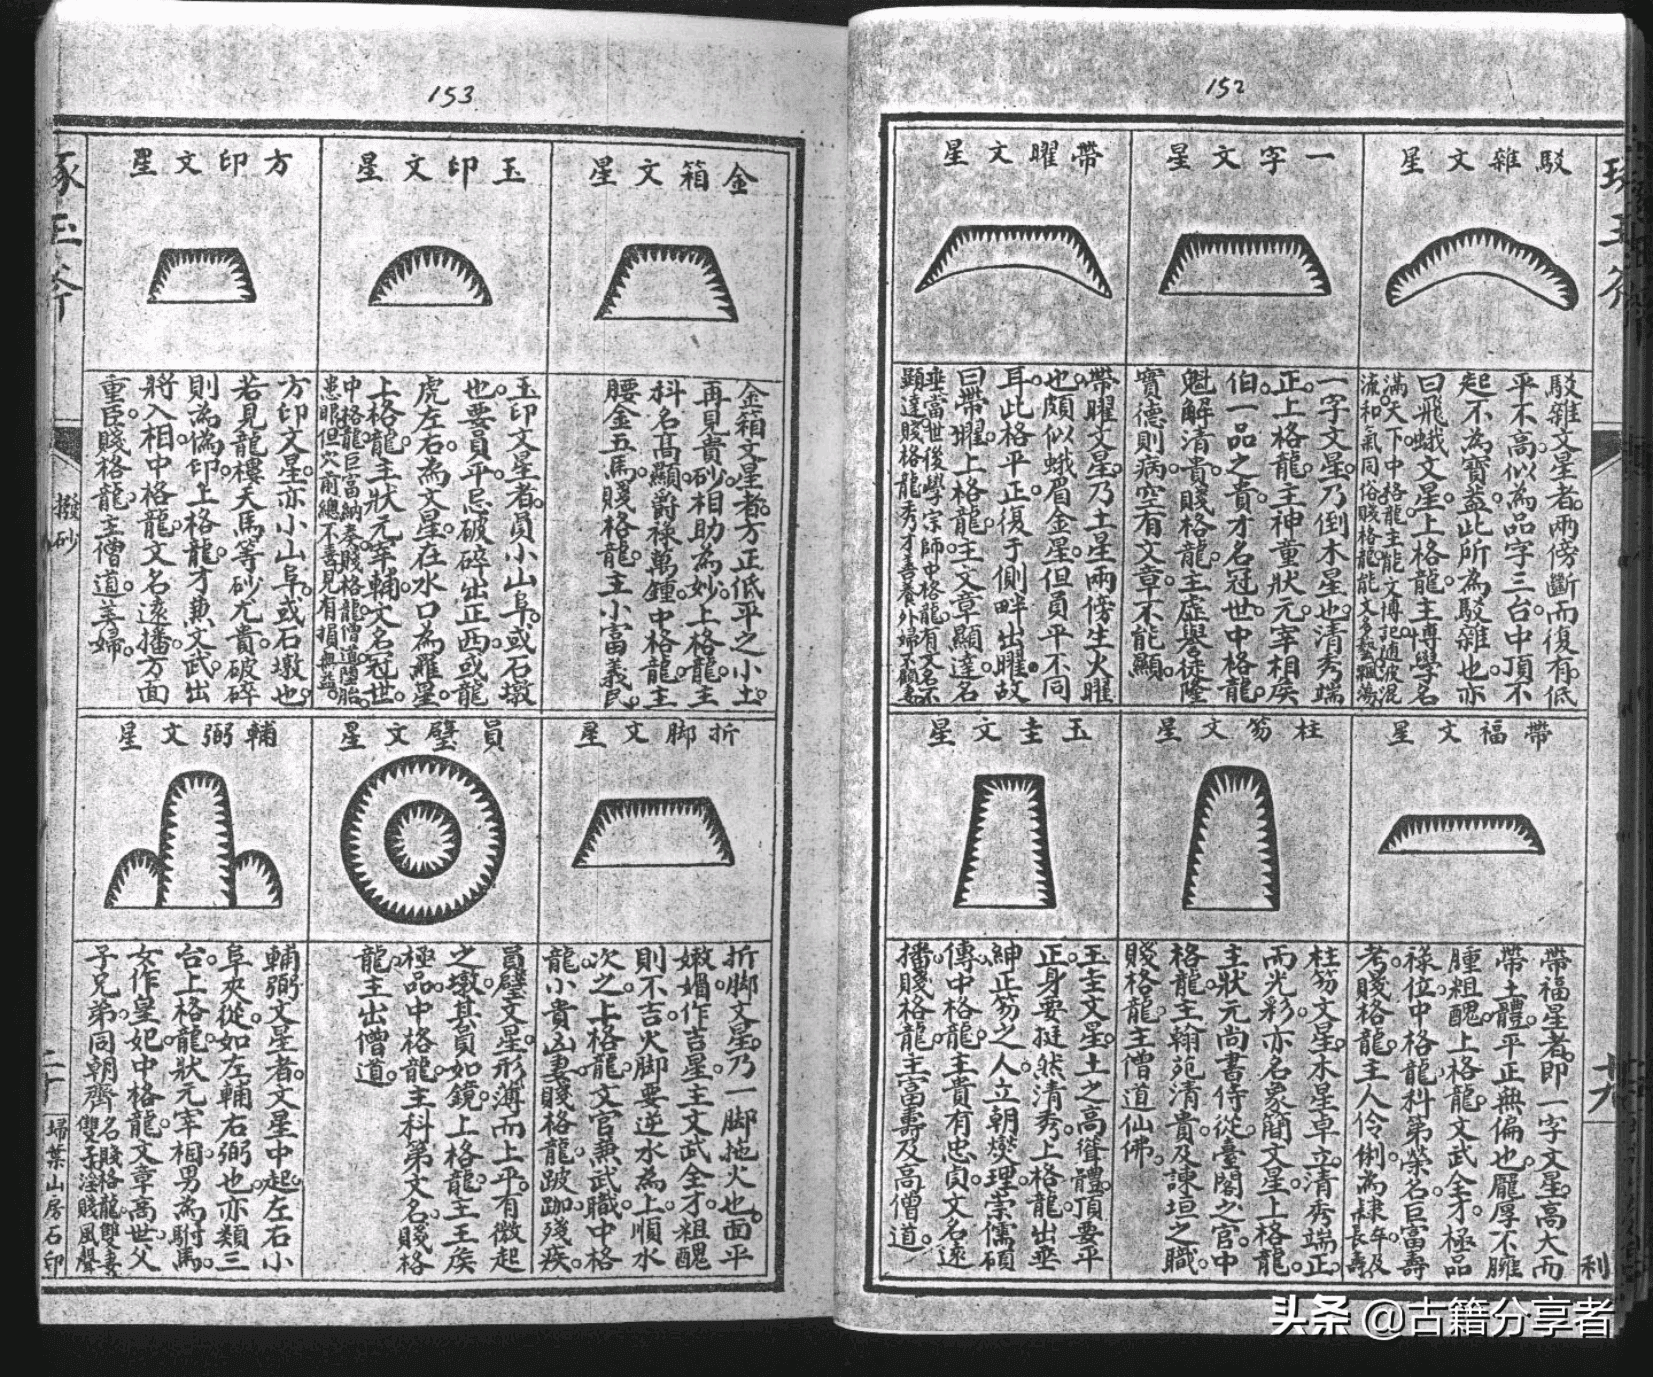 152
駁雜文星
駁雜文星者。兩傍斷而復有。低
平不高。似為品字三台。中頂不
起。不為寶蓋。此所為駁雜也。亦
曰飛蛾文星。上格龍。主博學名
滿天下。中格龍。主能文博記。隨波混
流。和氣同俗。賤格龍。能文多藝飄蕩。
一字文星
一字文星。乃倒木星也。清秀端
正。上格龍。主神童狀元。宰相侯
伯。一品之貴。才名冠世。中格龍。
魁解清貴。賤格龍。主虛譽徒隆
實德則病。空有文章。不能顯。
帶曜文星
帶曜文星。乃土星兩傍生火曜
也。頗似蛾眉金星。但員平不同
耳。此格平正。復于側畔出曜。故
曰帶曜。上格龍。主文章顯達。名
垂當世。後學宗師。中格龍。有文名。不
顯達。賤格龍。秀才善養外婦。不顧妻
帶福文星
帶福星者。即一字文星。高大而
帶土體。平正無偏也。龎厚不臃
腫粗醜。上格龍。文武全才。極品
祿位。中格龍。科第榮名。巨富壽
考。賤格龍。主人伶俐。為隸卒。及長壽
柱笏文星
柱笏文星。木星卓立。清秀端正。
而光彩。亦名象簡文星。上格龍。
主狀元尚書。侍從臺閣之官。中
格龍。主翰苑清貴。及諫垣之職。
賤格龍。主僧道仙佛。
玉圭文星
玉圭文星。土之高聳體。頂要平
正。身要挺然清秀。上格龍。出垂
紳正笏之人。立朝燮理。崇儒碩
傳。中格龍。主貴有忠貞。文名遠
播。賤格龍。主富壽及高僧道。
十九
利
153
金箱文星
金箱文星者。方正低平之小土。
再見貴砂相助為妙。上格龍。主
科名高顯。爵祿萬鍾。中格龍。主
腰金五馬。賤格龍。主小富義民。
玉印文星
玉印文星者。員小山阜。或石墩
也。要員平。忌破碎。出正西。或龍
虎左右。為文星。在水口為羅星。
上格龍。主狀元宰輔。文名冠世。
中格龍。巨富納奏。賤格龍。僧道墮胎
患眼。但穴前總不喜見。有損無益。
方印文星
方印文星。亦小山阜。或石墩也。
若見龍樓天馬等砂尤貴。破碎
則為偽印。上格龍。才兼文武。出
將入相。中格龍。文名遠播。方面
重臣。賤格龍。主僧道。美婦。
折脚文星
折脚文星。乃一脚拖火也。面平
嫩媚作吉星。主文武全才。粗醜
則不吉。火脚要逆水為上。順水
次之。上格龍。文官兼武職。中格
龍。小貴凶妻。賤格龍。跛跏殘疾。
員璧文星
員璧文星。形薄而上平。有微起
之墩。其員如鏡。上格龍。主王侯
極品。中格龍。主科第文名。賤格
龍。主出僧道。
輔弼文星
輔弼文星者。文星中起。左右小
阜夾從。如左輔右弼也。亦類三
台。上格龍。狀元宰相。男為駙馬。
女作皇妃。中格龍。文章高世。父
子兄弟同朝齊名。賤格龍。雙妻
雙子。淫賤風聲
琢玉斧
撥砂
二十
埽葉山房石印
头条 @古籍分享者